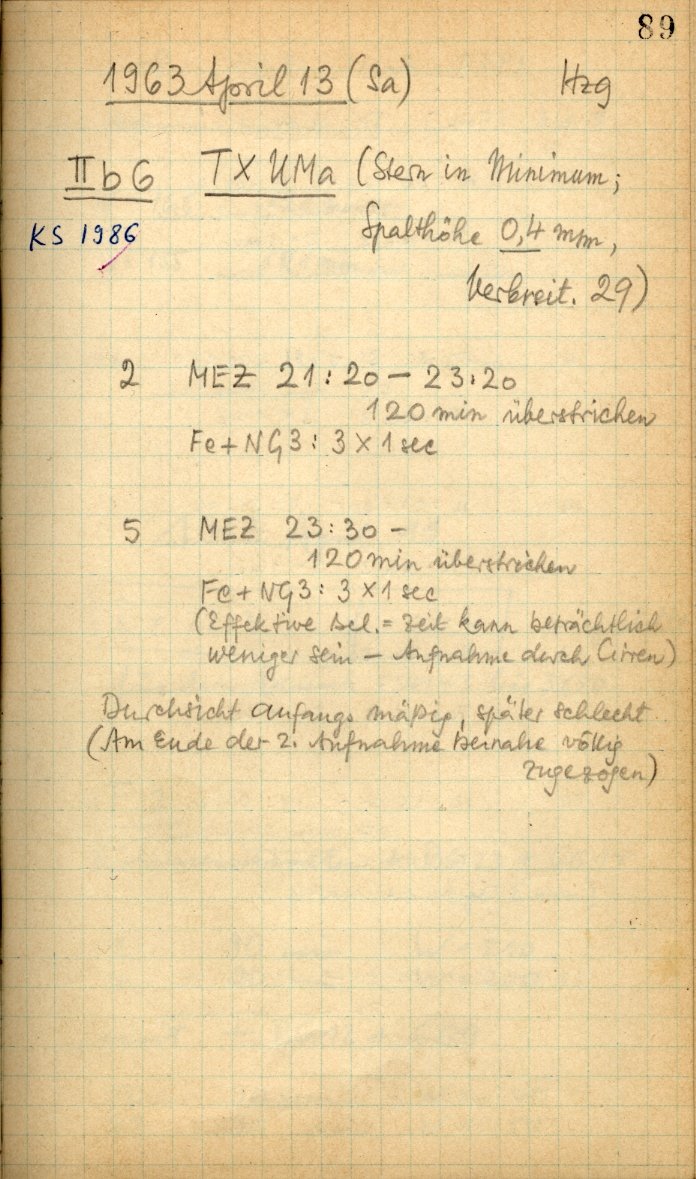 89
1963 April 13 (Sa) Hzg
II b 6 TX UMa (Stern in Minimum;
KS 1986 Spalthöhe 0,4 mm,
Verbreit. 29)
2 MEZ 21:20 – 23:20
120 min überstrichen
Fe + NG3: 3 × 1 sec
5 MEZ 23:30 –
120 min überstrichen
Fe + NG3: 3 × 1 sec
(Effektive Bel. = Zeit kann beträchtlich
weniger sein – Aufnahme durch Cirren)
Durchsicht anfangs mäßig, später schlecht
(Am Ende der 2. Aufnahme beinahe völlig
zugezogen)